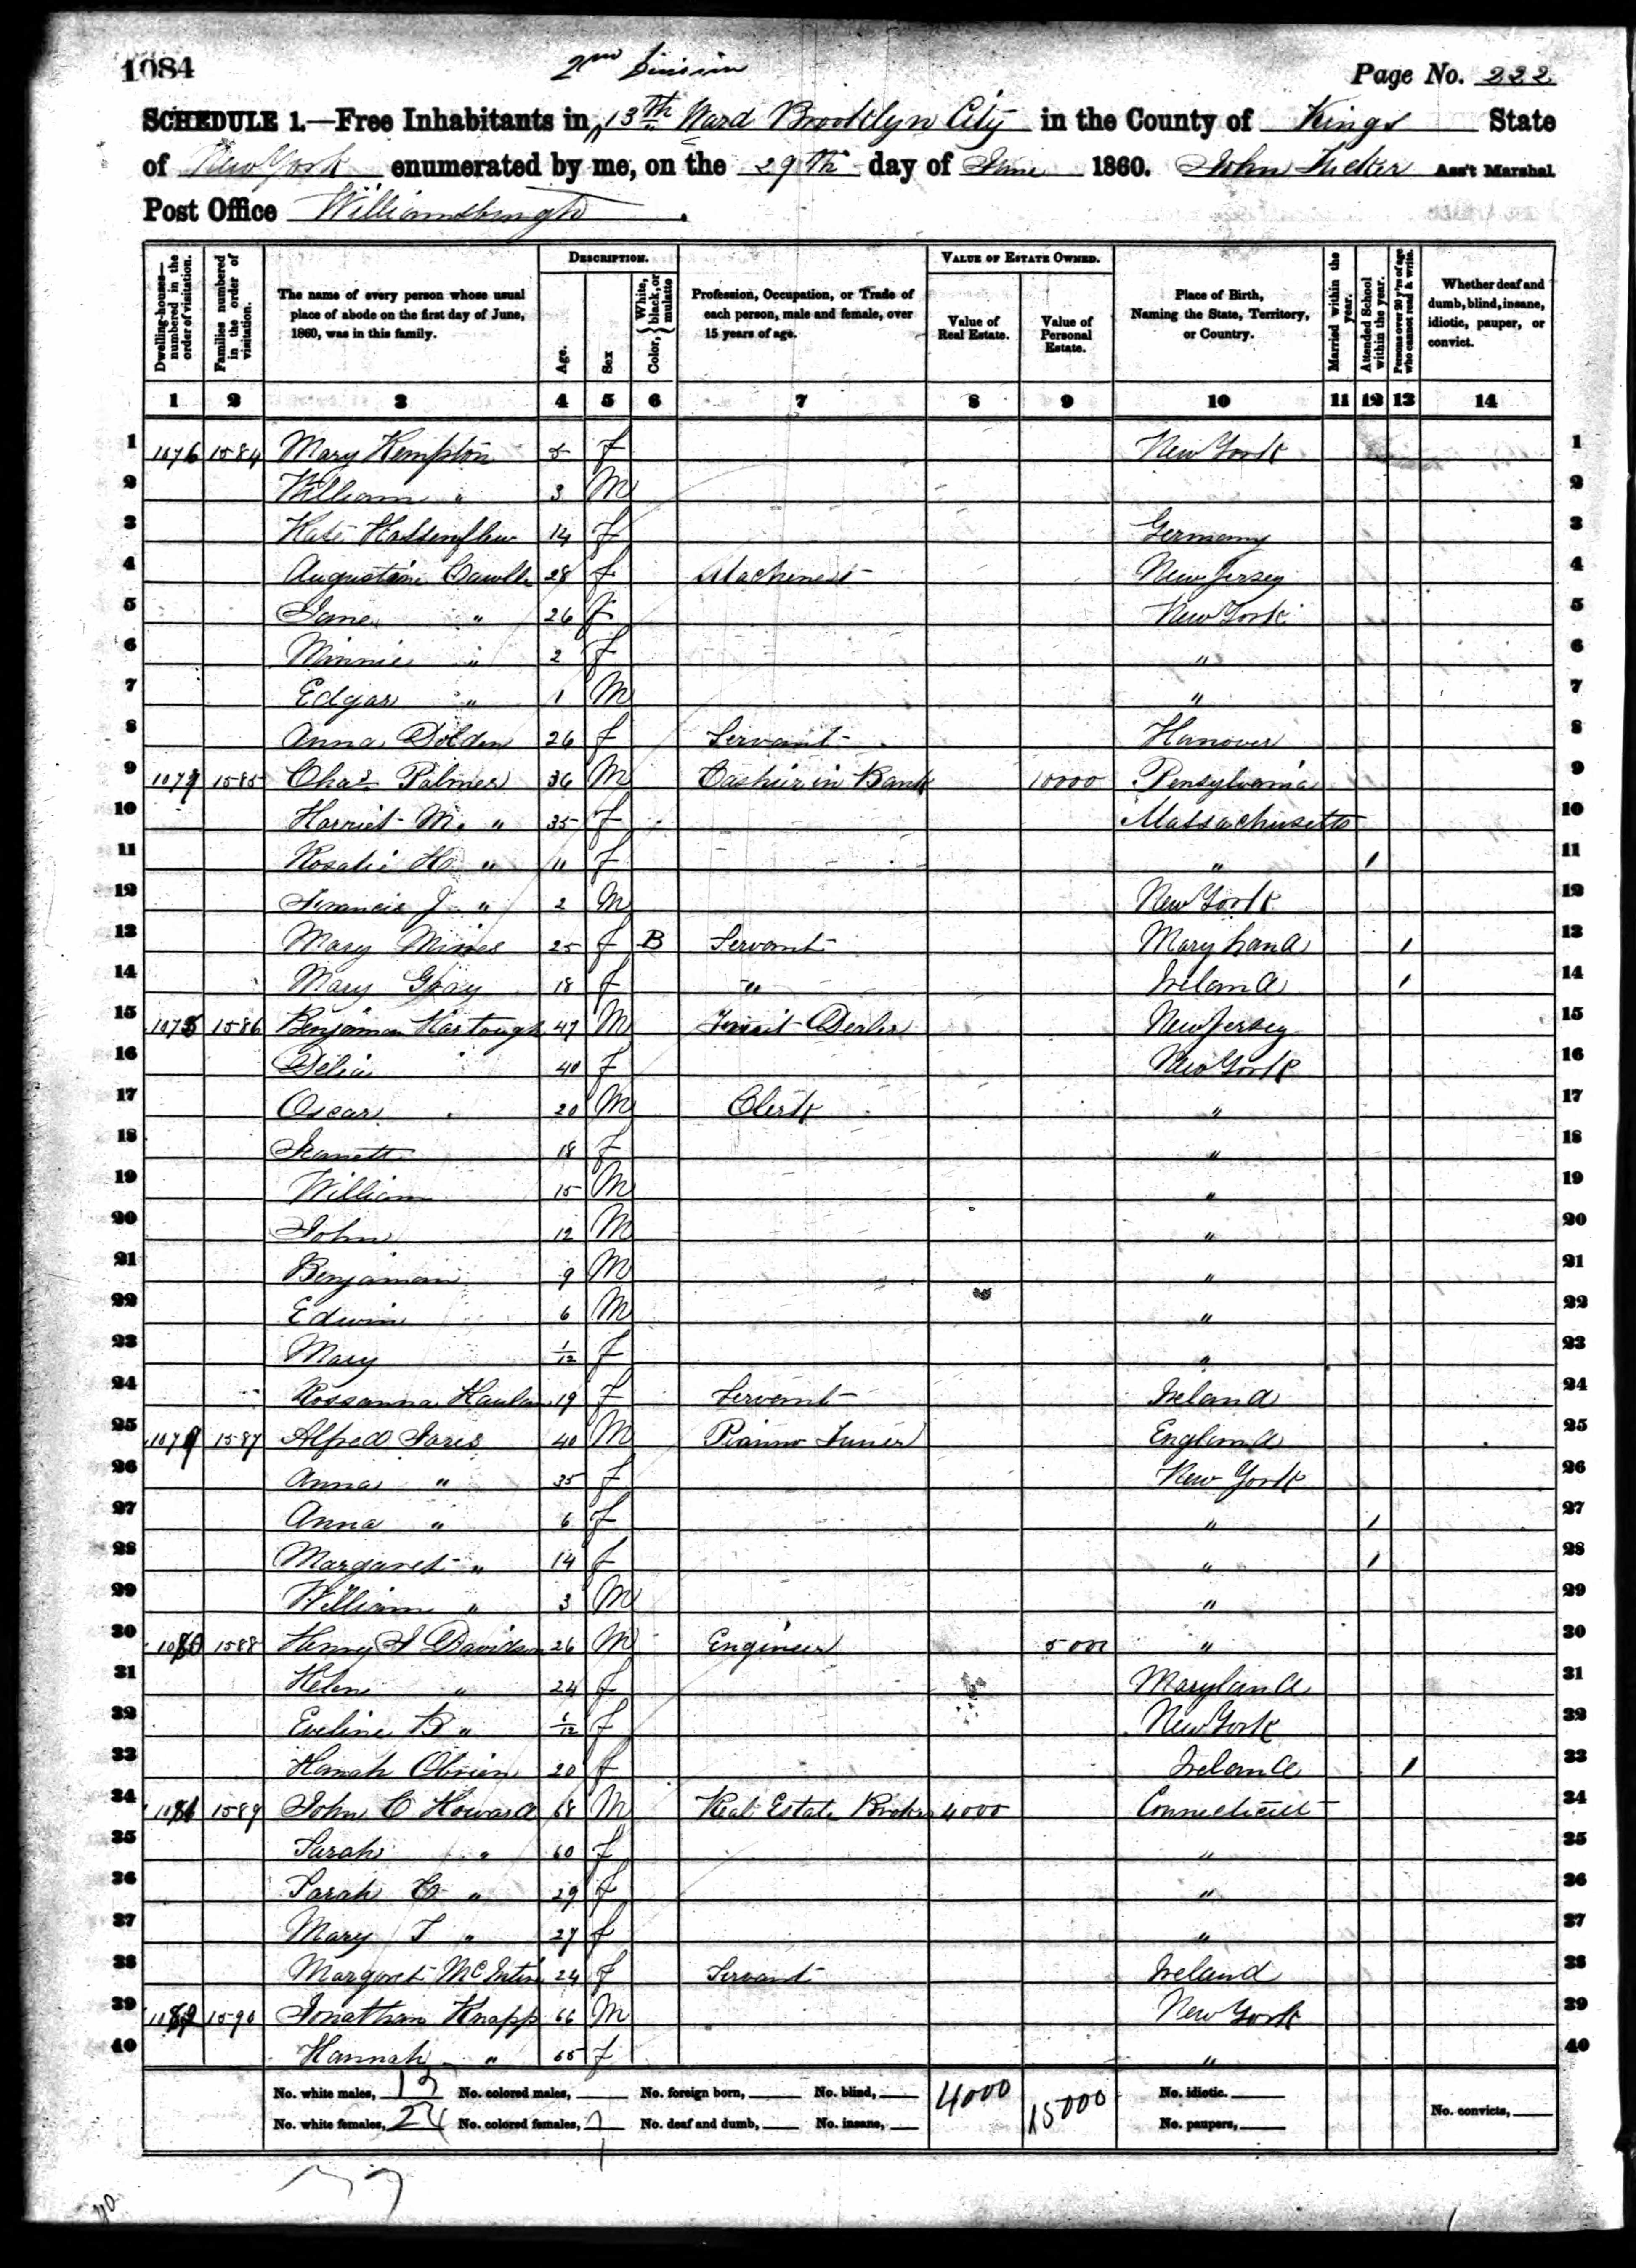 1084
2nd Division
Page No. 222
SCHEDULE 1.—Free Inhabitants in 13th Ward Brooklyn City in the County of Kings State
of New York enumerated by me, on the 29th day of June 1860. John Tucker Ass't Marshal.
Post Office Williamsburgh.
Dwelling-houses—numbered in the order of visitation.
Families numbered in the order of visitation.
The name of every person whose usual place of abode on the first day of June, 1860, was in this family.
DESCRIPTION.
Age.
Sex
Color, { White, black, or mulatto
Profession, Occupation, or Trade of each person, male and female, over 15 years of age.
VALUE OF ESTATE OWNED.
Value of Real Estate.
Value of Personal Estate.
Place of Birth, Naming the State, Territory, or Country.
Married within the year.
Attended School within the year.
Persons over 20 y'rs of age who cannot read & write.
Whether deaf and dumb, blind, insane, idiotic, pauper, or convict.
1 2 3 4 5 6 7 8 9 10 11 12 13 14
1 1076 1584 Mary Kempton 5 f New York 1
2 William " 3 M 2
3 Kate 14 f Germany 3
4 Augustine 28 f Machenest New Jersey 4
5 Jane " 26 f New York 5
6 Minnie " 2 f " 6
7 Edgar " 1 M " 7
8 Anna Dolden 26 f Servant Hanover 8
9 1077 1585 Chas. Palmer 36 M Cashier in Bank 10000 Pensylvania 9
10 Harriet M. " 35 f Massachusetts 10
11 Rosalie H " 11 f " / 11
12 Francis J " 2 M New York 12
13 Mary Mines 25 f B Servant Maryland / 13
14 Mary Gray 18 f " Ireland / 14
15 1078 1586 Benjaman Hartough 47 M Fruit Dealer New Jersey 15
16 Delia 40 f New York 16
17 Oscar 20 M Clerk " 17
18 Jeanett 18 f " 18
19 William 15 M " 19
20 John 12 M " 20
21 Benjaman 9 M " 21
22 Edwin 6 M " 22
23 Mary 1/12 f " 23
24 Rossanna Hanlan 19 f Servant Ireland 24
25 1079 1587 Alfred 40 M Pianno Tuner England 25
26 Anna " 35 f New York 26
27 Anna " 6 f " / 27
28 Margaret " 14 f " / 28
29 William " 3 M " 29
30 1080 1588 Henry S Davidson 26 M Engineer 5000 " 30
31 Helen " 24 f Maryland 31
32 Eveline B " 1/12 f New York 32
33 Hanah Obrien 20 f Ireland / 33
34 1081 1589 John C Howard 68 M Real Estate Broker 4000 Connecticut 34
35 Sarah " 60 f " 35
36 Sarah C " 29 f " 36
37 Mary T " 27 f " 37
38 Margaret McEntire 24 f Servant Ireland 38
39 1082 1590 Jonathan Knapp 66 M New York 39
40 Hannah " 65 f " 40
No. white males, No. colored males, No. foreign born, No. blind, 4000 15000 No. idiotic.
No. white females, 24 No. colored females, 1 No. deaf and dumb, No. insane, No. paupers, No. convicts,